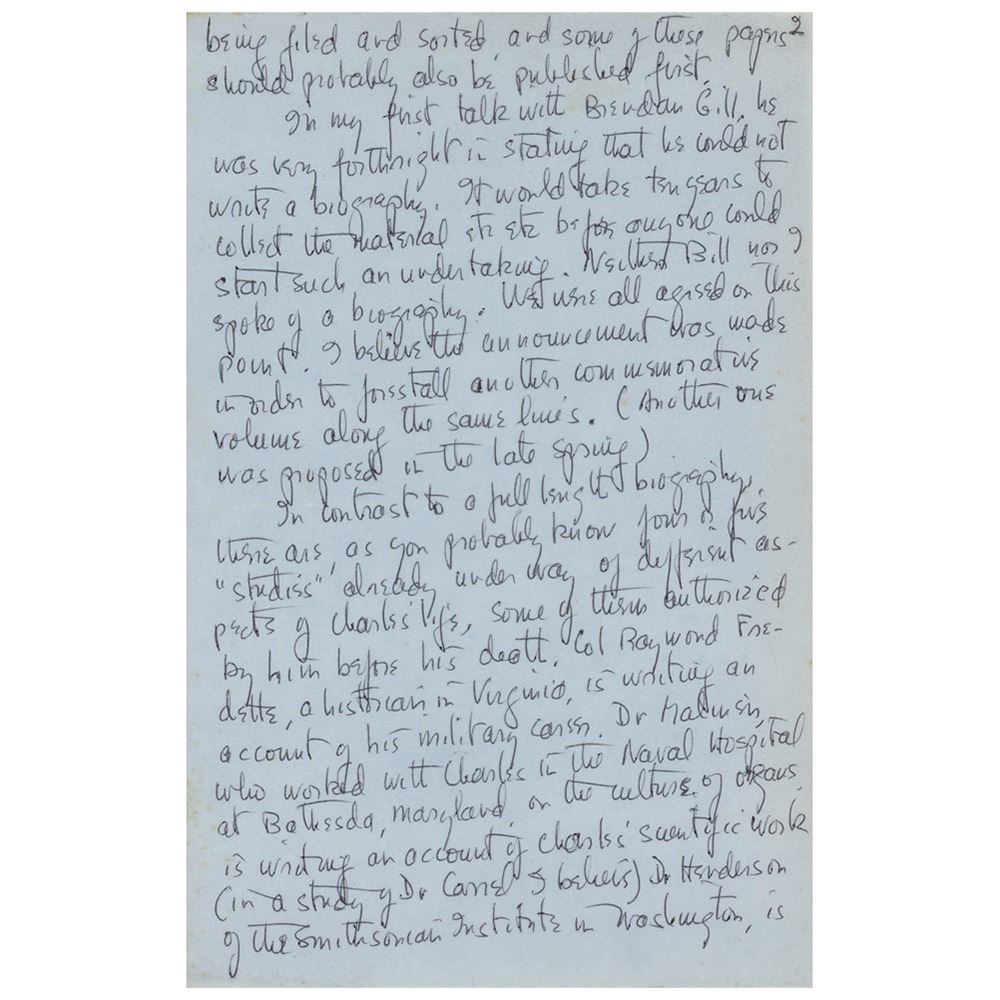 2
being filed and sorted, and some of those papers
should probably also be published first.
In my first talk with Brendan Gill, he
was very forthright in stating that he could not
write a biography. It would take ten years to
collect the material etc etc before anyone could
start such an undertaking. Neither Bill nor I
spoke of a biography. We were all agreed on this
point. I believe the announcement was made
in order to forestall another commemorative
volume along the same lines. (Another one
was proposed in the late spring)
In contrast to a full length biography,
there are, as you probably know four or five
"studies" already under way of different as-
pects of Charles' life, some of them authorized
by him before his death. Col Raymond Fre-
dette, a historian in Virginia, is writing an
account of his military career. Dr
who worked with Charles in the Naval Hospital
at Bethesda, Maryland, on the culture of organs
is writing an account of Charles' scientific work
(in a study of Dr Carrel I believe) Dr Henderson
of the Smithsonian Institute in Washington, is